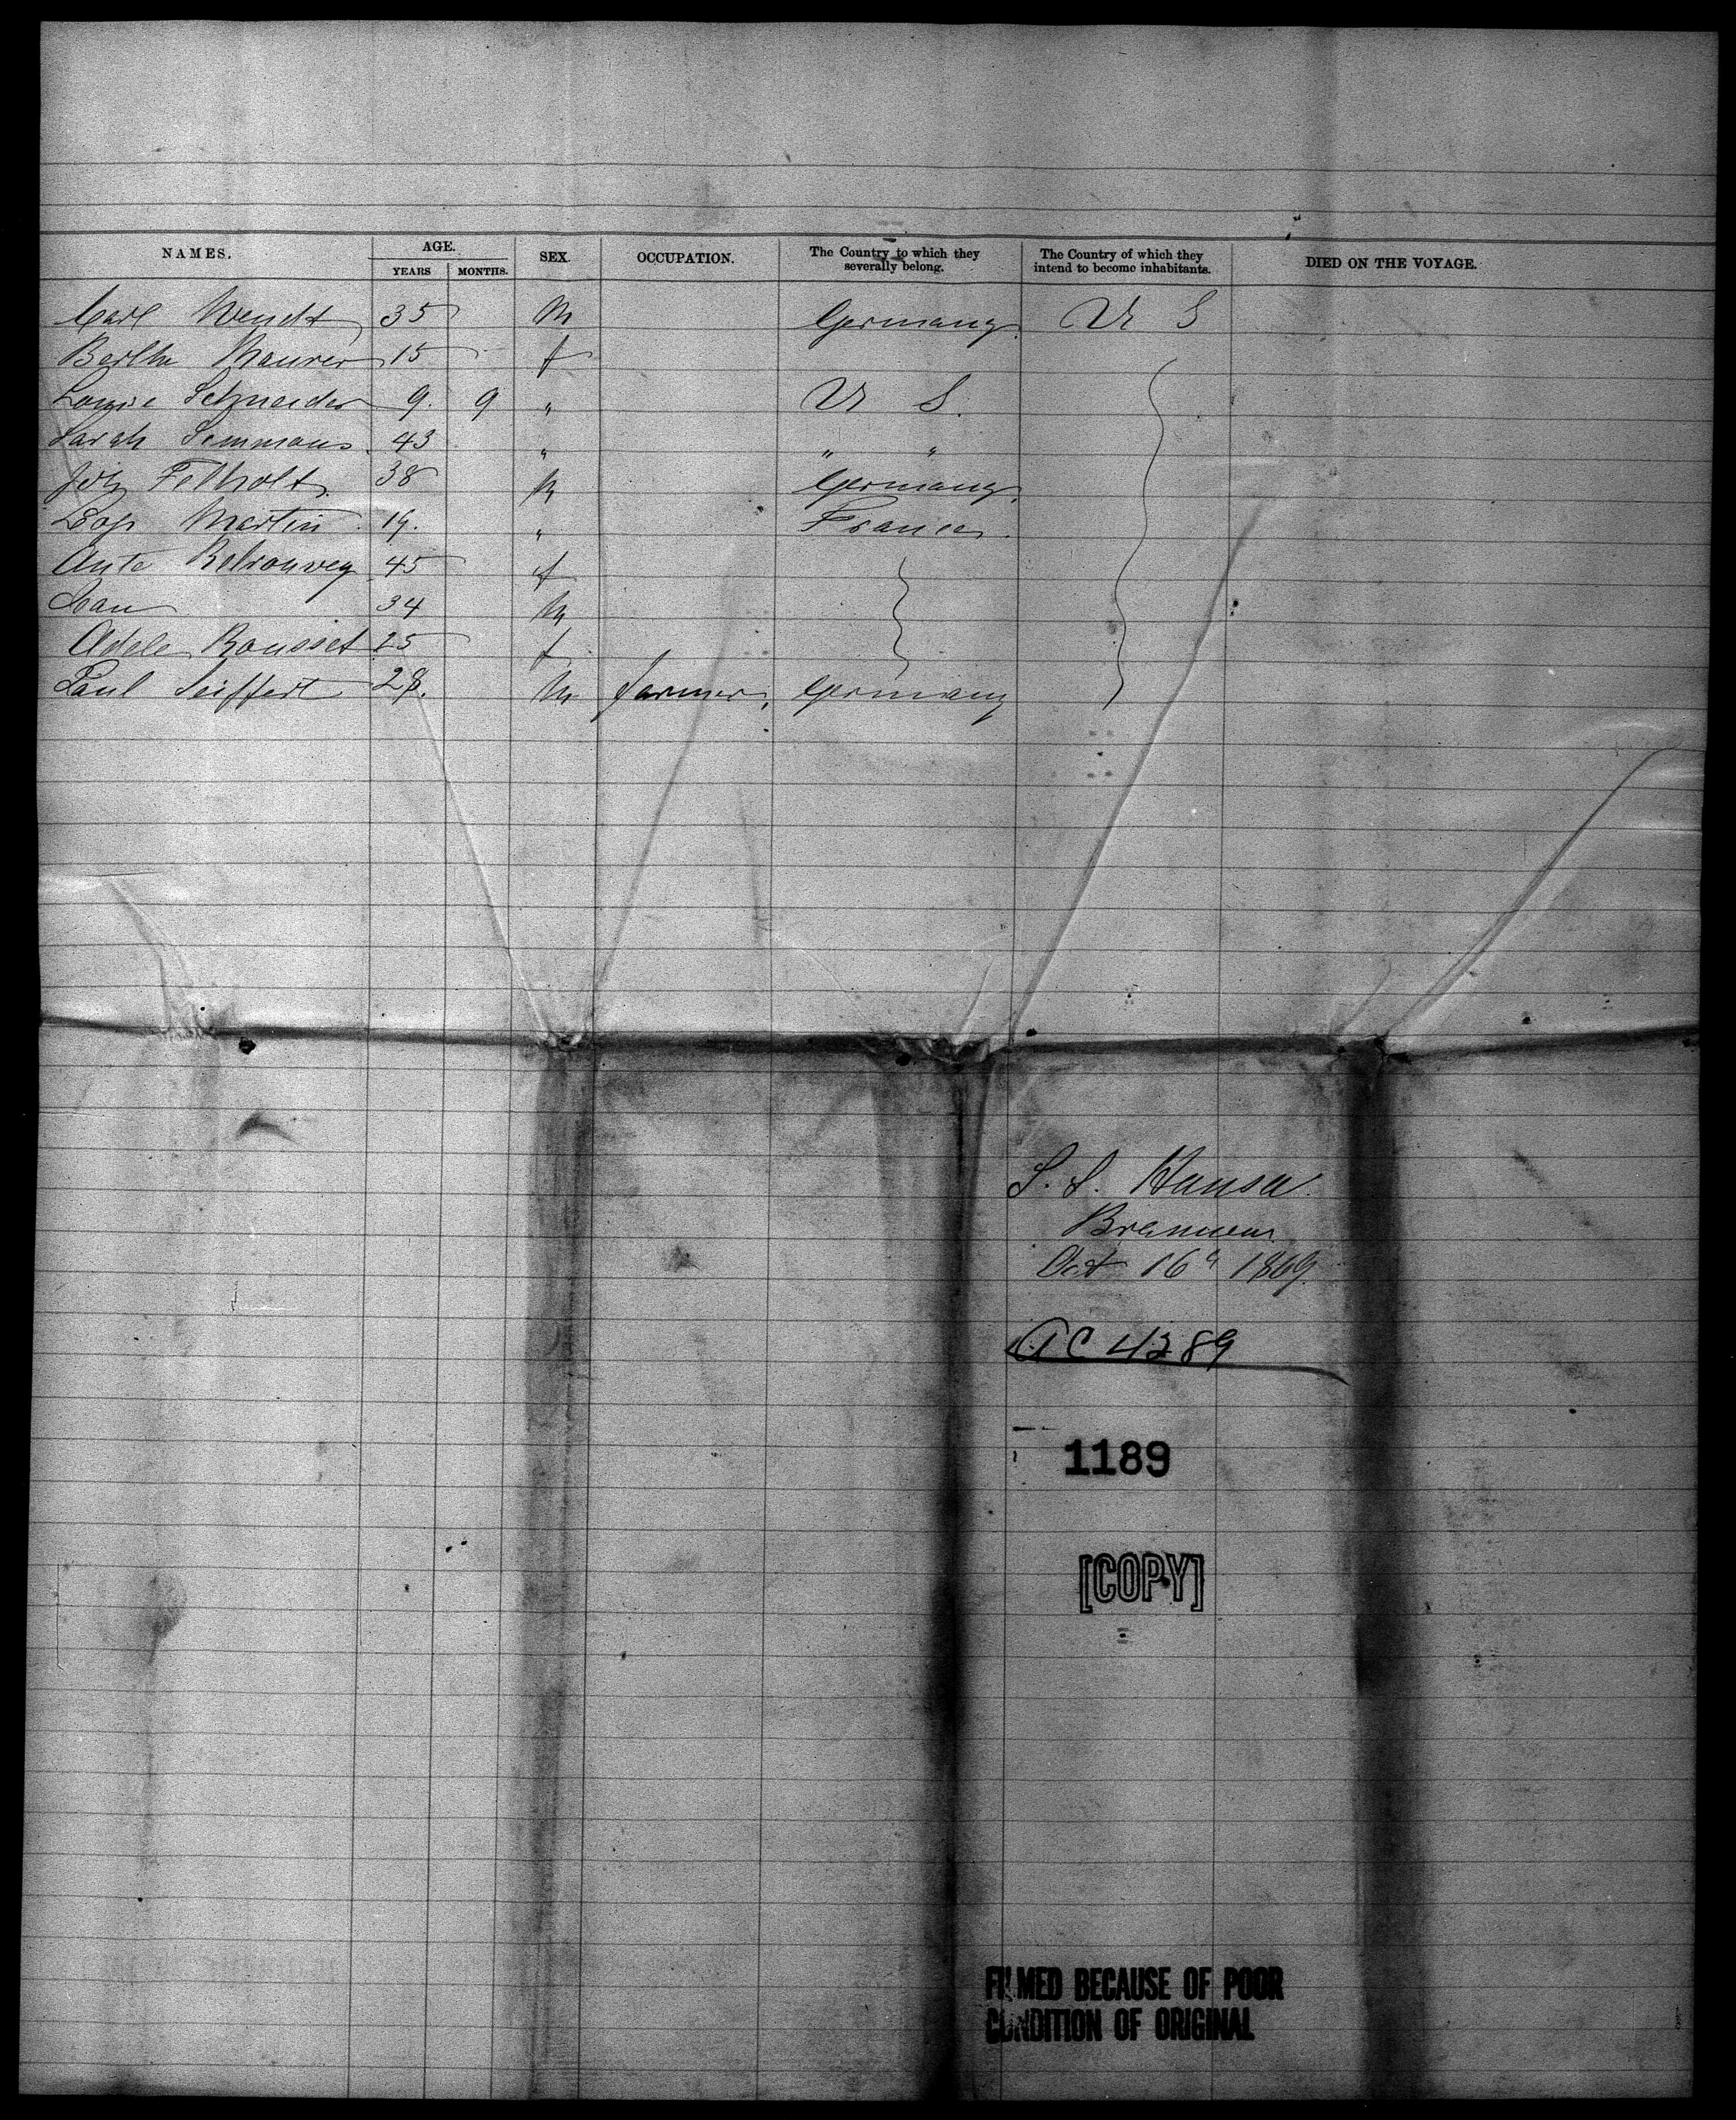 NAMES. AGE. SEX. OCCUPATION. The Country to which they severally belong. The Country of which they intend to become inhabitants. DIED ON THE VOYAGE.
YEARS MONTHS.
Carl Wendt 35 M Germany U S
Bertha Maurer 15 f
Louise Schneider 9. 9 " U S.
Sarah Semmons 43 " " "
Felholt 38 M Germany
Martin 19. " France.
45 f
34 M
Adele Rousset 25 f
Paul Seiffert 28. M farmer, Germany
S. S. Hansa
Bremen
Oct 16" 1869.
AC 4289
1189
[COPY]
FILMED BECAUSE OF POOR
CONDITION OF ORIGINAL